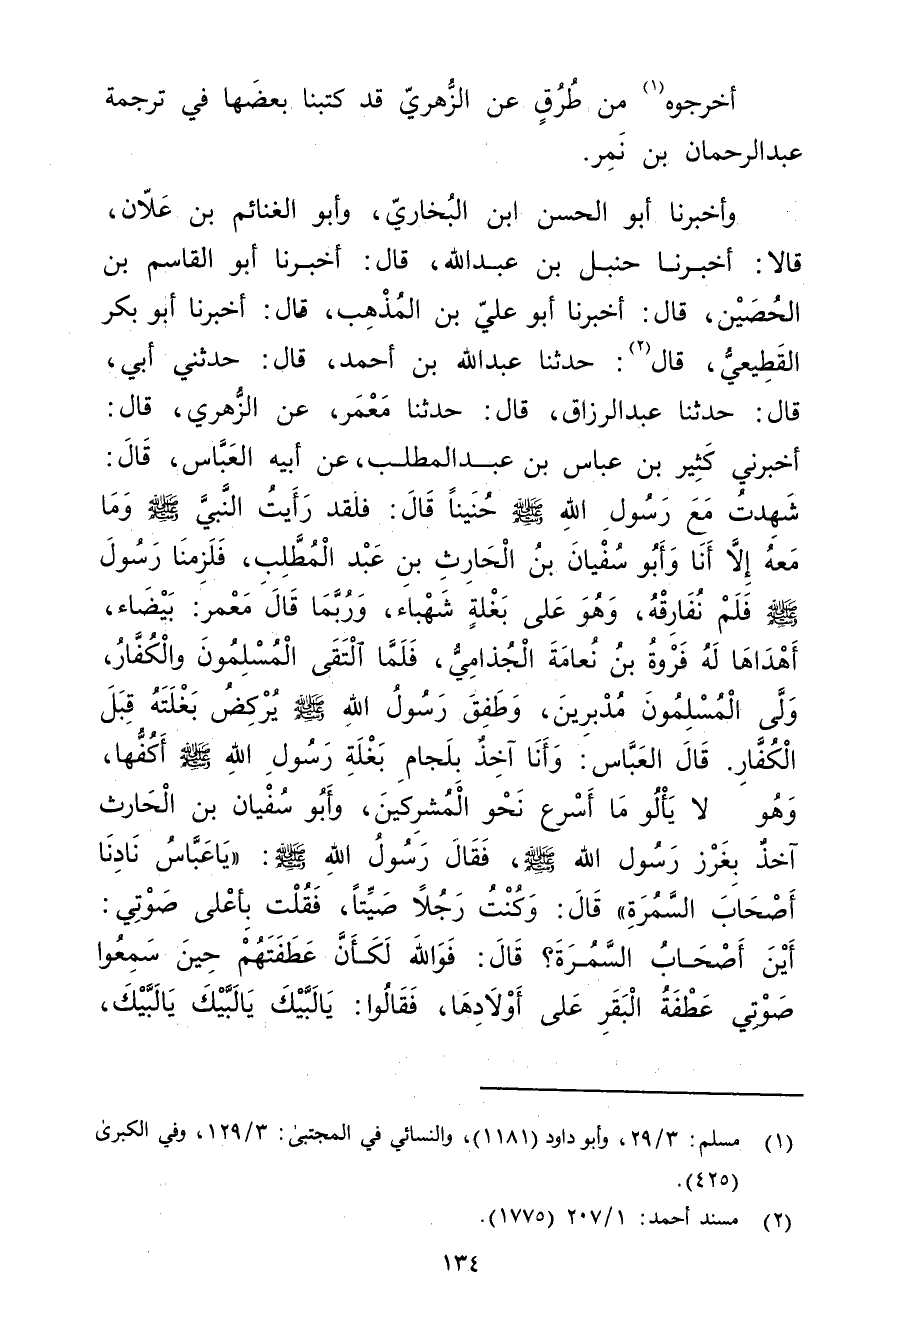 أخرجوه(١) من طُرُقٍ عن الزُّهريّ قد كتبنا بعضَها في ترجمة
عبدالرحمان بن نَمِر.
وأخبرنا أبو الحسن ابن البُخاريّ، وأبو الغنائم بن عَلّان،
قالا: أخبرنا حنبل بن عبدالله، قال: أخبرنا أبو القاسم بن
الحُصَيْن، قال: أخبرنا أبو عليّ بن المُذْهِب، قال: أخبرنا أبو بكر
القَطِيعيُّ، قال(٢): حدثنا عبدالله بن أحمد، قال: حدثني أبي،
قال: حدثنا عبدالرزاق، قال: حدثنا مَعْمَر، عن الزُّهري، قال:
أخبرني كَثِير بن عباس بن عبدالمطلب، عن أبيه العَبَّاس، قَالَ:
شَهِدتُ مَعَ رَسُولِ اللهِ ﷺ حُنَيناً قَالَ: فلقد رَأَيتُ النَّبيَّ ﷺ وَمَا
مَعهُ إلَّا أَنَا وَأَبُو سُفْيانَ بنُ الْحَارثِ بنِ عَبْد الْمُطَّلِب، فَلَزِمنَا رَسُولَ
ﷺ فَلَمْ نُفَارقْهُ، وَهُوَ عَلى بَغْلةٍ شَهْباء، وَرُبَّمَا قَالَ مَعْمر: بَيْضَاء،
أَهْدَاهَا لَهُ فَرْوةُ بنُ نُعامَةَ الْجُذاميُّ، فَلَمَّا الْتَقَى الْمُسْلِمُونَ والْكُفَّارُ،
وَلَّى الْمُسْلِمُونَ مُدْبِرينَ، وَطَفِقَ رَسُولُ اللهِ ﷺ يُرْكِضُ بَغْلَتَهُ قِبَلَ
الْكُفَّارِ. قَالَ العَبَّاس: وَأَنَا آخِذٌ بلَجام بَغْلَةِ رَسُولِ اللهِ ﷺ أَكُفُّها،
وَهُو لا يَأْلُو مَا أَسْرع نَحْو الْمُشركينَ، وأَبُو سُفْيان بن الْحَارث
آخذٌ بغَرْز رَسُول الله ﷺ، فَقَالَ رَسُولُ اللهِ ﷺ: «يَاعَبَّاسُ نَادِنَا
أَصْحَابَ السَّمُرَةِ» قَالَ: وَكُنْتُ رَجُلاً صَيِّتاً، فَقُلْت بأعْلى صَوْتِي:
أَيْنَ أَصْحَابُ السَّمُرَةَ؟ قَالَ: فَوَاللهَ لَكَأَنَّ عَطَفَتَهُمْ حِينَ سَمِعُوا
صَوْتِي عَطْفَةُ الْبَقَرِ عَلى أَوْلَادِهَا، فَقَالُوا: يَالَبَّيْكَ يَالَبَّيْكَ يَالَبَّيْكَ،
(١) مسلم: ٢٩/٣، وأبو داود (١١٨١)، والنسائي في المجتبىٰ: ١٢٩/٣، وفي الكبرىٰ
(٤٢٥).
(٢) مسند أحمد: ٢٠٧/١ (١٧٧٥).
١٣٤